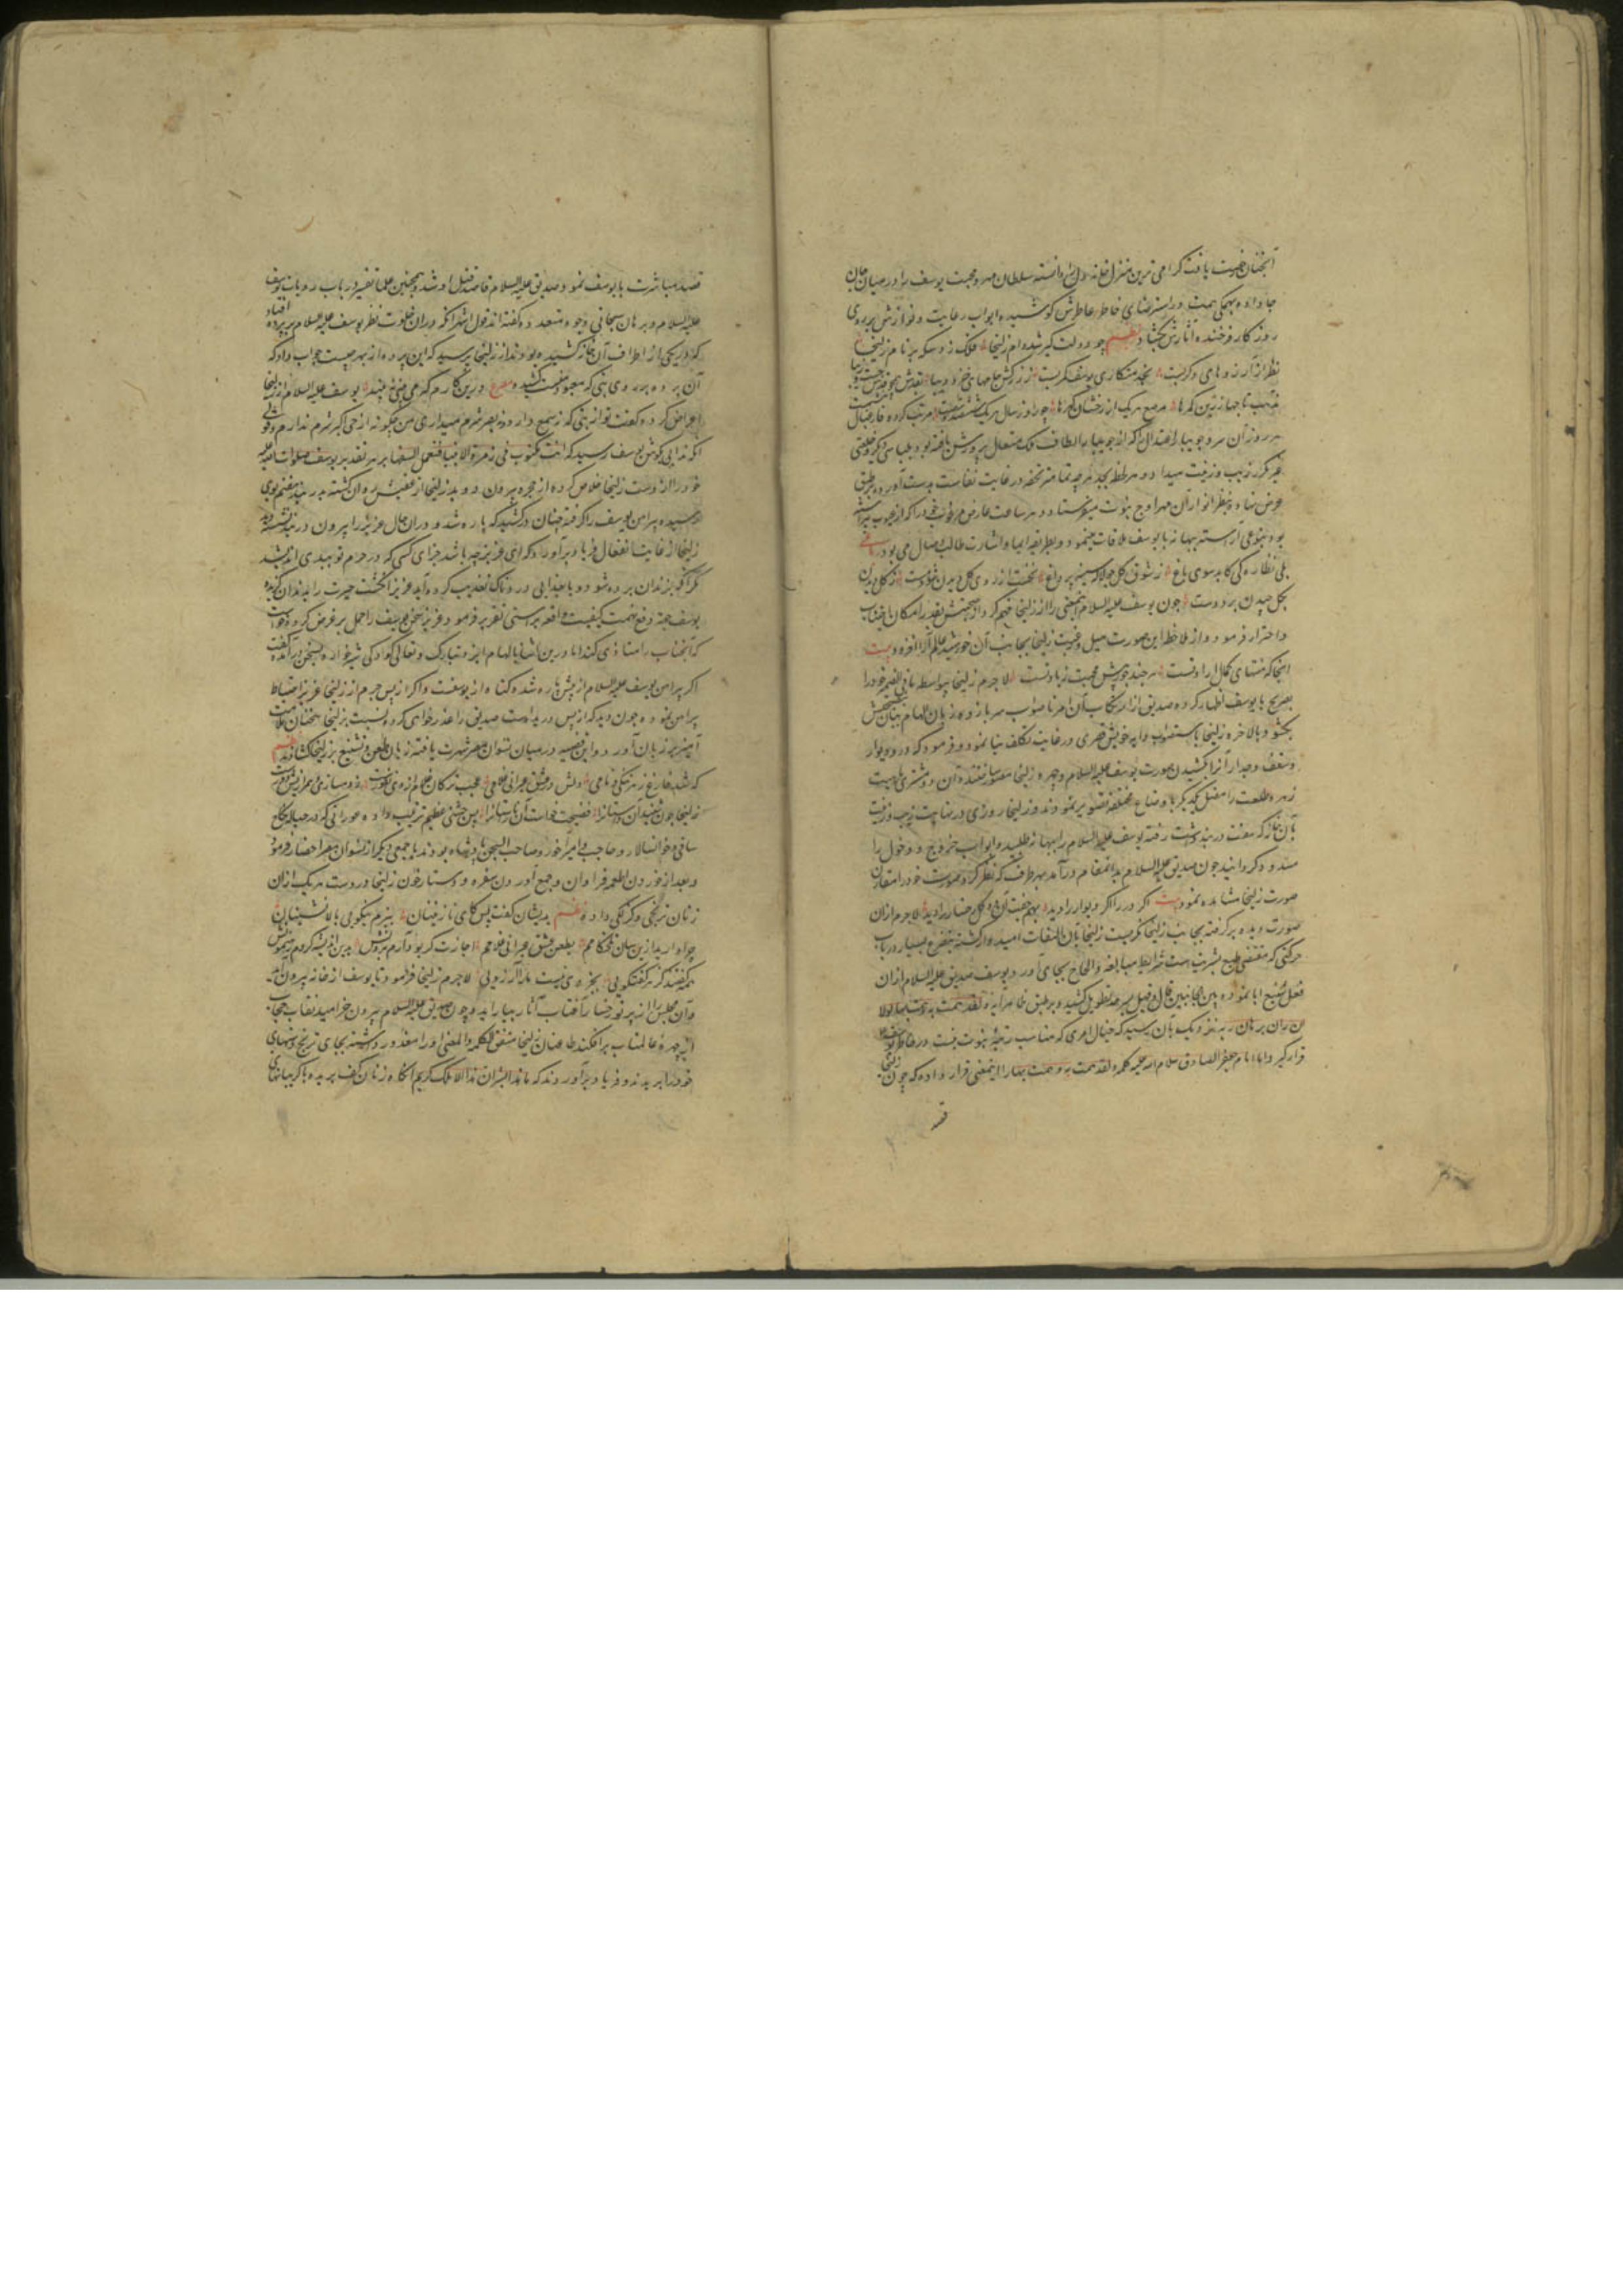 آنچنان رغبت یافت کرامی ترین منزل خانه دل را دانسته سلطان مهر و محبت یوسف را در میان جان
جا داده بهمکی همت در استرضای خاطر عاطرش کوشیده ابواب رعایت و نوازش بر روی
روزکار فرخنده آثارش بکشاد نظم چو دولت کیر شد دام زلیخا فلک زد سکه بر نام زلیخا
نظر از آرزوهای دکر بست بخدمتکاری یوسف کمر بست ز زرکش جامهای خز و دیبا
مرصع هریک از رخشان کهرها چو روز سال هریک مرتب کرده
هر روز آن سرو جویبار اعتدال را که از جویبار الطاف ملک متعال پرورش یافته بود بلباسی دیکر و خلعتی
غیر مکرر زیب و زینت میداد و هر لحظه بجد هرچه تمامتر تحفه در غایت نفاست بدست آورده بطریق
عرض نهاده بنظر انوار آن مهر اوج نبوت میفرستاد و هر ساعت عارض مرغوب خود را که از عیوب مبرا
بود بنوعی آراسته ببهانه با یوسف ملاقات مینمود و بطریقه ایما و اشارت طالب وصال می بود
بلی نظارکی کاید سوی باغ ز شوق کل چو لاله سینه پر داغ نخست از روی کل دیدن شود مست ز کل دیدن
بکل چیدن برد دست چون یوسف علیه السلام اینمعنی را از زلیخا فهم کرد از صحبتش بقدر امکان اجتناب
و احتراز فرمود و از ملاحظه این صورت میل و رغبت زلیخا بجانب آن خورشید عالم آرا افزود بیت
اینجا که منتهای کمال ارادتست هرچند جور بیش محبت زیادتست لاجرم زلیخا بیواسطه ما فی الضمیر خود را
بصریح با یوسف اظهار کرده صدیق از ارتکاب آن امر ناصواب سر باز زده زبان الهام بیان بنصیحتش
بکشود بالاخره زلیخا باستصواب دایه خویش قصری در غایت تکلف بنا نمود و فرمود که در و دیوار
و سقف و جدار آنرا بکشیدن صورت یوسف علیه السلام و چهره زلیخا مصور ساختند و آن دو مشتری
زهره طلعت را متصل یکدیکر باوضاع مختلفه تصویر نمودند و زلیخا روزی در نهایت زیب و زینت
بآن خانه که صفت در بند داشت رفته یوسف علیه السلام را ببهانه طلبیده ابواب خروج و دخول را
مسدود کردانید چون صدیق علیه السلام بدانمقام درآمد بهر طرف که نظر کرد صورت خود را مقارن
صورت زلیخا مشاهده نمود بیت اکر در را اکر دیوار را دید بهم جفت آن دو کل رخسار را دید لاجرم از آن
صورت دیده برکرفته بجانب زلیخا نکریست زلیخا بآن التفات امیدوار کشته بتضرع بسیار در باب
حرکتی که مقتضی طبع بشریت است شرایط مبالغه و الحاح بجای آورد و یوسف صدیق علیه السلام از آن
فعل شنیع ابا نموده بین الجانبین قال و قیل بسرحد تطویل کشید و بر طبق ظاهر آیه و لقد همت به و هم بها لولا
ان رای برهان ربه نزدیک بآن رسید که خیال امری که مناسب رتبه نبوت نیست در خاطر یوسف
قرار کیرد اما امام جعفر الصادق سلام الله علیه کلمه و لقد همت به و هم بها را اینمعنی قرار داده که چون زلیخا
قصد
قصد مباشرت با یوسف نمود صدیق علیه السلام قاصد قتل او شد و همچنین علما تفسیر در باب رویات یوسف
علیه السلام و برهان سبحانی وجوه متعدده کفته اند قول اشهر آنکه در آن خلوت نظر یوسف علیه السلام بر پرده افتاد
که در یکی از اطراف آن خانه کشیده بودند از زلیخا پرسید که این پرده از بهر چیست جواب داد که
آن پرده بر روی بتی که معبود منست کشیده مصرع درین کارم که می بینی نبیند یوسف علیه السلام از زلیخا
اعراض کرده کفت تو از بتی که نه سمع دارد و نه بصر شرم میداری من چکونه از حی اکبر شرم ندارم و قولی
آنکه ندایی بکوش یوسف رسید که انت مکتوب فی زمرة الانبیا فتعمل عمل السفها بر هر تقدیر یوسف صلوات الله علیه
خود را از دست زلیخا خلاص کرده از حجره بیرون دوید زلیخا از عقبش روان کشته بدر خانه هفتم بوی
رسید و پیراهن یوسف را کرفته چنان درکشید که پاره شد و در آن حال عزیز را بیرون در خانه نشسته دید
زلیخا از غایت انفعال فریاد برآورد که ای عزیز چه باشد جزای کسی که در حرم تو بدی اندیشد
مکر آنکه بزندان برده شود و یا بعذابی دردناک تعذیب کرده آید عزیز انکشت حیرت را بدندان کزیده
یوسف جهة دفع تهمت کیفیت واقعه براستی تقریر فرمود و عزیز سخن یوسف را حمل بر غرض کرده خواست
که آنجناب را متاذی کند اما در این اثنا بالهام ایزد تبارک و تعالی کودکی شیرخواره بسخن درآمده کفت
اکر پیراهن یوسف علیه السلام از پیش پاره شده کناه از یوسفست و اکر از پس جرم از زلیخا عزیز احتیاط
پیراهن نموده چون دید که از پس دریده است صدیق را عذرخواهی کرد و نسبت بزلیخا سخنان ملامت
آمیز بر زبان آورد و این قصه در میان نسوان مصر شهرت یافته زبان بطعن و تشنیع زلیخا کشادند نظم
که شد فارغ ز هر ننکی و نامی دلش در عشق عبرانی غلامی عجب تر کان غلام از وی نفورست ز دمسازی و همرازیش دورست
زلیخا چون شنید آن داستانرا فضیحت خواست آن ناراستانرا پس جشنی عظیم ترتیب داده عوراتی که در حباله نکاح
ساقی و خوانسالار و حاجب و امیرآخور و صاحب السجن پادشاه بودند با جمعی دیکر از نسوان مصر احضار فرمود
و بعد از خوردن اطعمه فراوان و جمع آوردن سفره و دستارخوان زلیخا در دست هریک از آن
زنان ترنجی و کزلکی داده نظم بدیشان کفت پس کای نازنینان ببزم نیکویی بالانشینان
چرا دارید ازین سان تلخ کامم بطعن عشق عبرانی غلامم اجازت کر بود آرم برونش بدین اندیشه کردم رهنمونش
همه کفتند کز هر کفتکویی بجز وی نیست ما را آرزویی لاجرم زلیخا فرمود تا یوسف از خانه بیرون آید
و آن مجلس را از پرتو رخسار آفتاب آثار بیاراید و چون صدیق علیه السلام بیرون خرامید نقاب حجاب
از چهره عالمتاب برافکند طاعنان زلیخا متفق الکلمه و المعنی او را معذور داشته بجای ترنج دستهای
خود را بریدند و فریاد برآوردند که ما هذا بشرا ان هذا الا ملک کریم آنکاه زنان کف بریده با کریبانهای